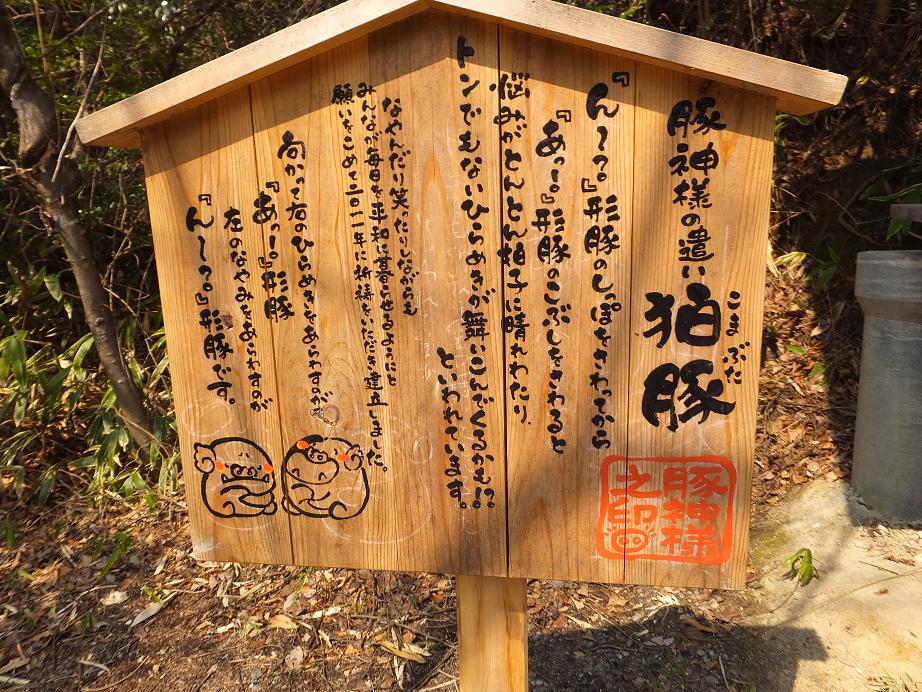 豚神様の遣い 狛豚
こま ぶた
『ん〜?。』形豚のしっぽをさわってから
『あっ!。』形豚のこぶしをさわると
悩みがとんとん拍子に晴れわたり、
トンでもないひらめきが舞いこんでくるかも!?
といわれています。
なやんだり笑ったりしながらも
みんなが毎日を平和に暮らせるようにと
願いをこめて二〇一一年に祈祷をいただき建立しました。
向かって右のひらめきをあらわすのが
『あっ!。』形豚
左のなやみをあらわすのが
『ん〜?。』形豚です。
豚神様
之印